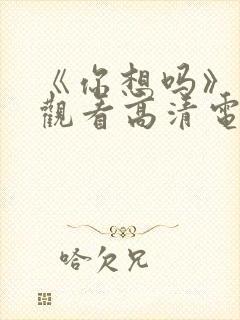 《你想吗》
觀看高清電
哈欠兄